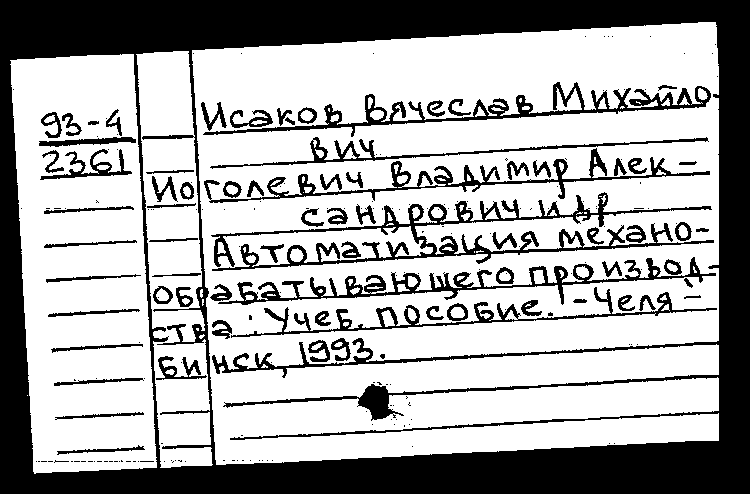 93-4
2361
Исаков, Вячеслав Михайло-
вич
Иоголевич, Владимир Алек-
сандрович и др
Автоматизация механо-
обрабатывающего производ-
ства : Учеб. пособие. - Челя-
бинск, 1993.